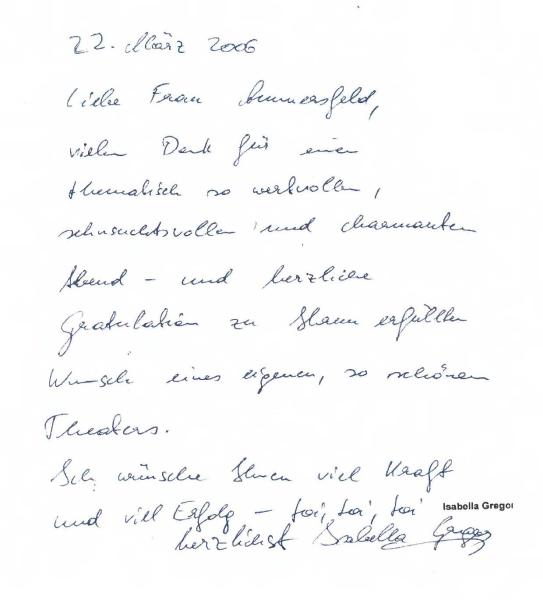 22. März 2006
Liebe Frau Ammersfeld,
vielen Dank für einen
thematisch so wertvollen,
sehnsuchtsvollen und charmanten
Abend - und herzliche
Gratulation zu Ihrem erfüllten
Wunsch eines eigenen, so schönen
Theaters.
Ich wünsche Ihnen viel Kraft
und viel Erfolg - toi, toi, toi
Isabella Gregor
herzlichst Isabella Gregor